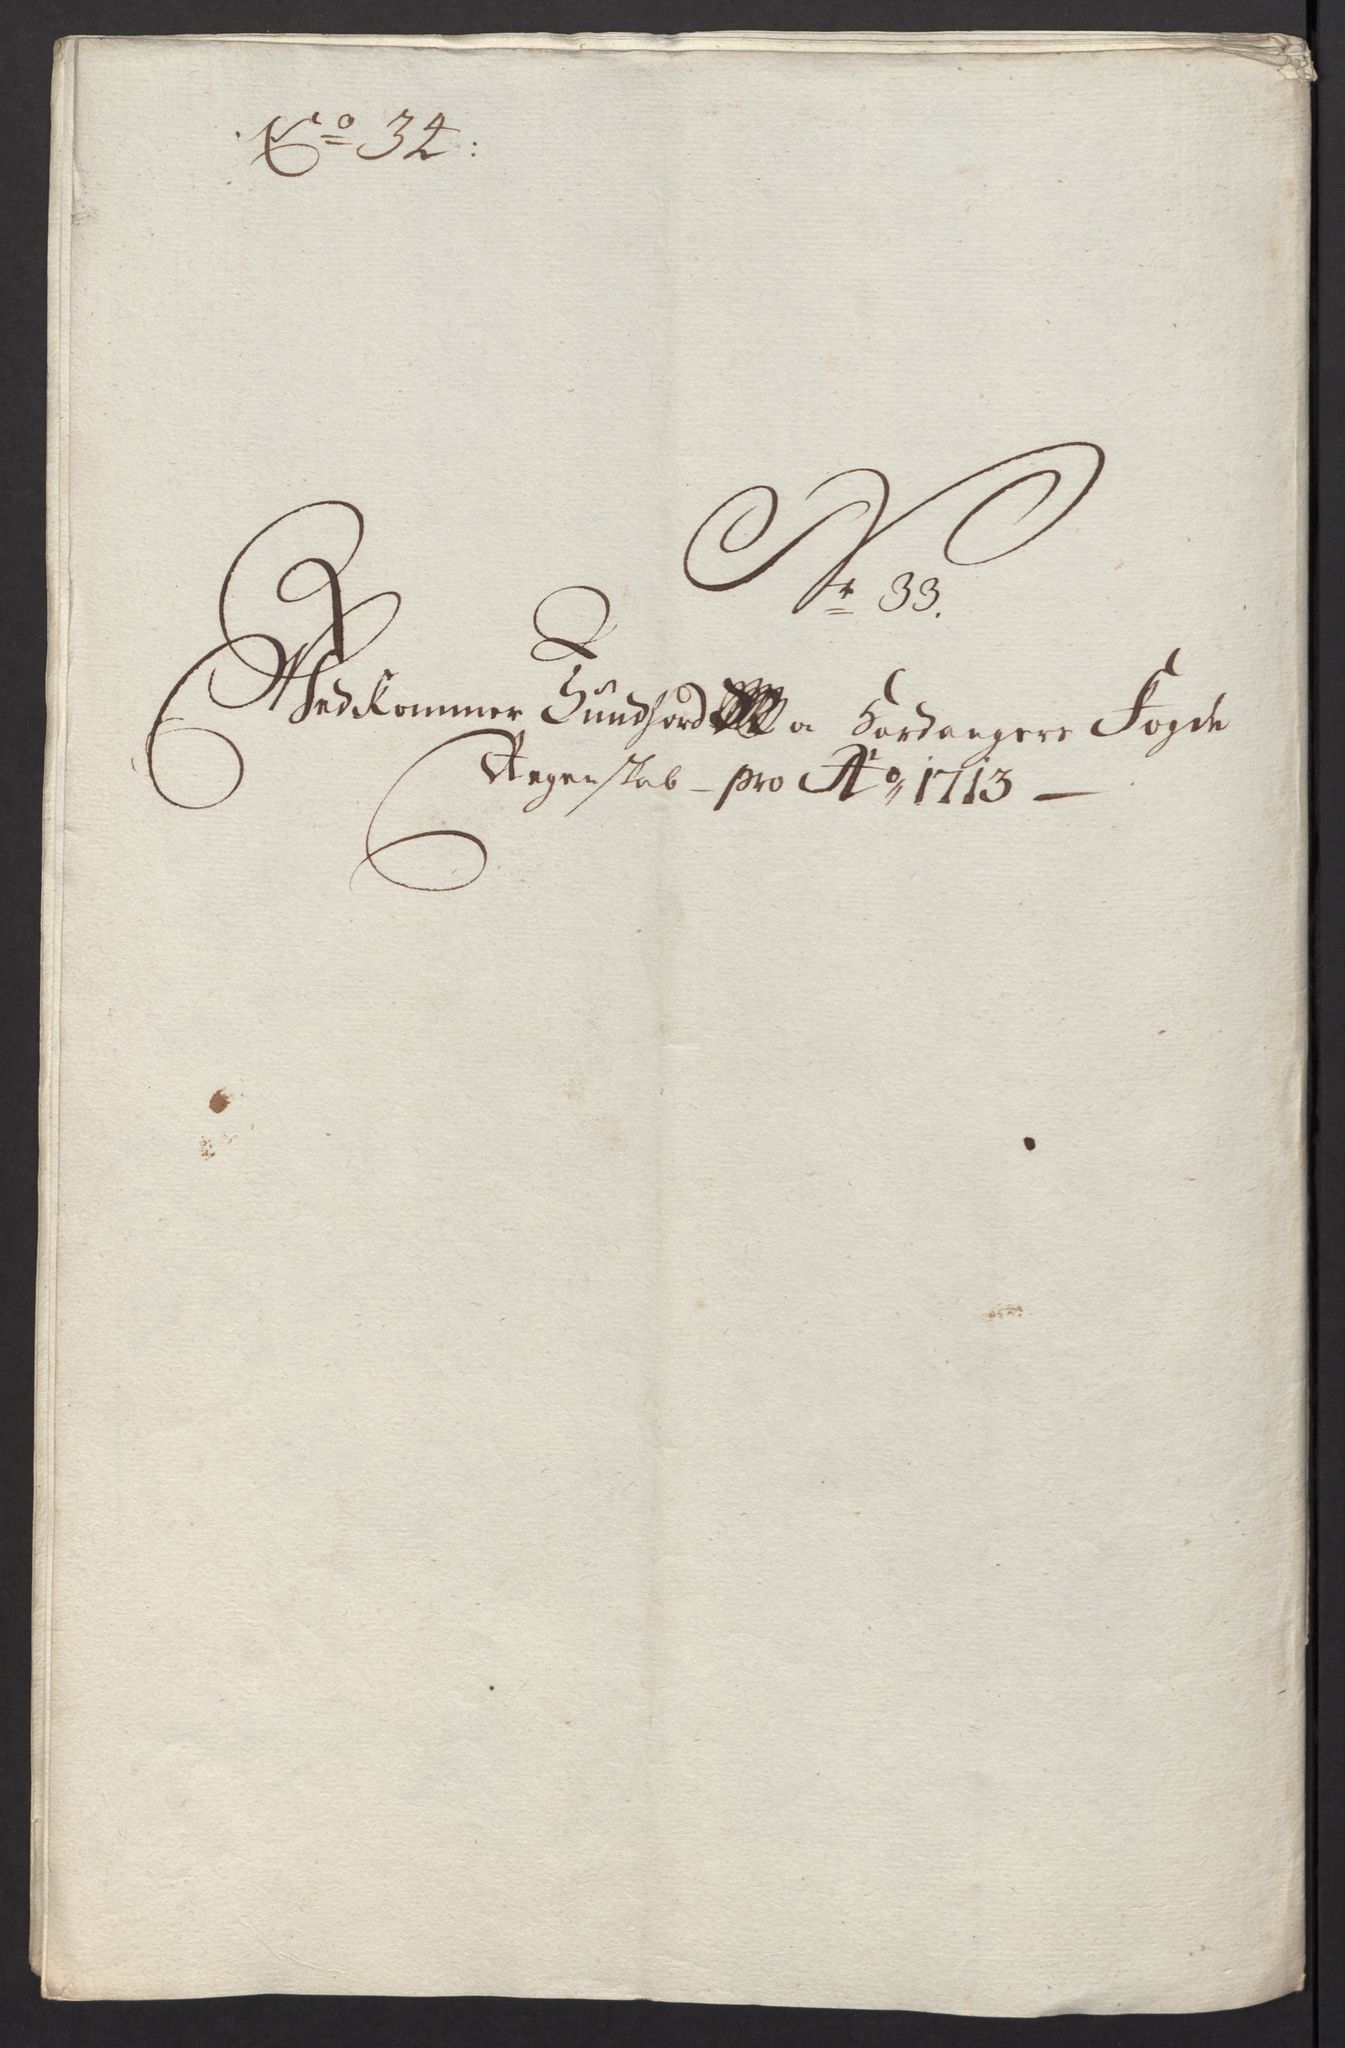 No 34:
Nr 33.
Vedkommer Sundhord o Hardangers Fogde
Regenskab - pro Ao 1713 -